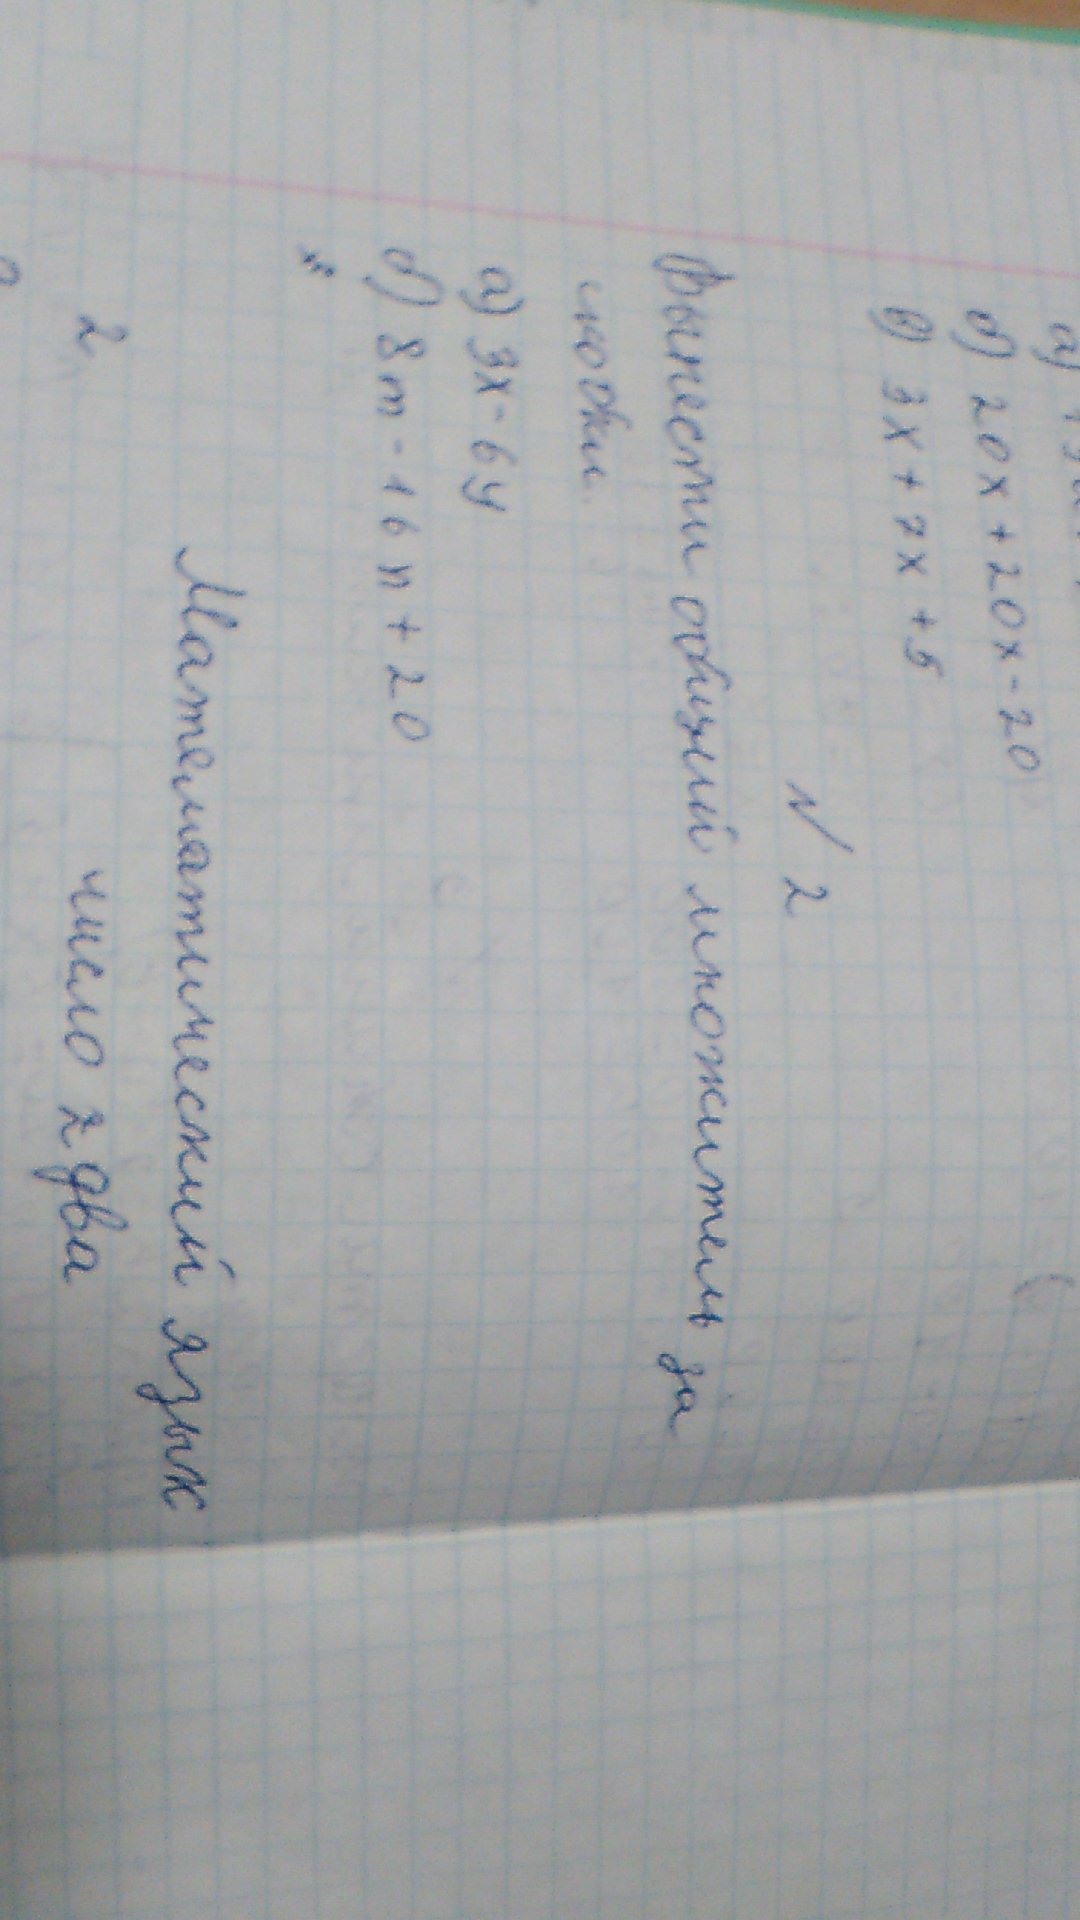 а)
б) 20х + 20х - 20
в) 3х + 7х + 5
№ 2
Вынести общий множитель за
скобки.
а) 3х - 6у
б) 8m - 16n + 20
Математический язык
2 число 2 два